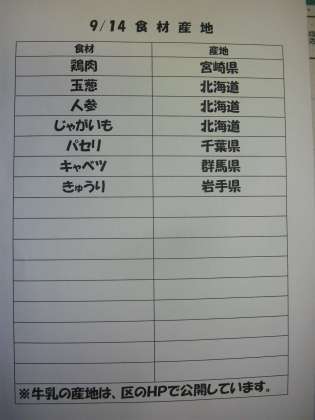 9/14 食材産地
食材 産地
鶏肉 宮崎県
玉葱 北海道
人参 北海道
じゃがいも 北海道
パセリ 千葉県
キャベツ 群馬県
きゅうり 岩手県
※牛乳の産地は、区のHPで公開しています。